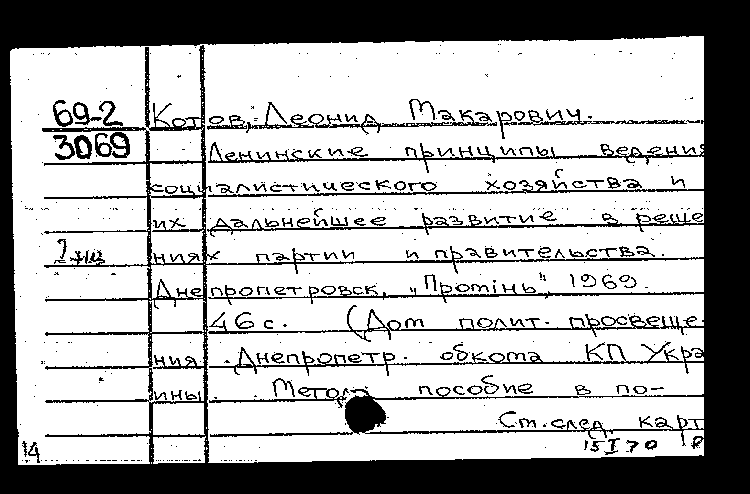 69-2 Котов, Леонид Макарович.
3069 Ленинские принципы ведения
социалистического хозяйства и
их дальнейшее развитие в реше
ниях партии и правительства.
Днепропетровск, „Промінь", 1969.
46 с. (Дом полит. просвеще-
ния Днепропетр. обкома КП Укра
ины. Метод. пособие в по-
Ст. след. карт
15 I 70
14